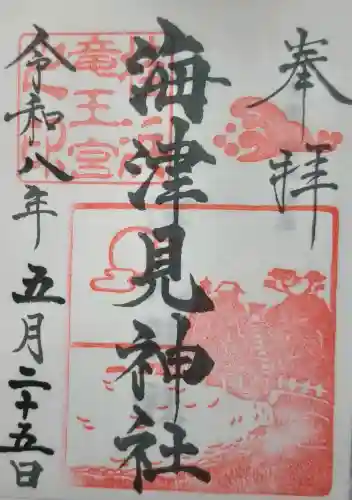 奉拝
海津見神社
令和八年五月二十五日